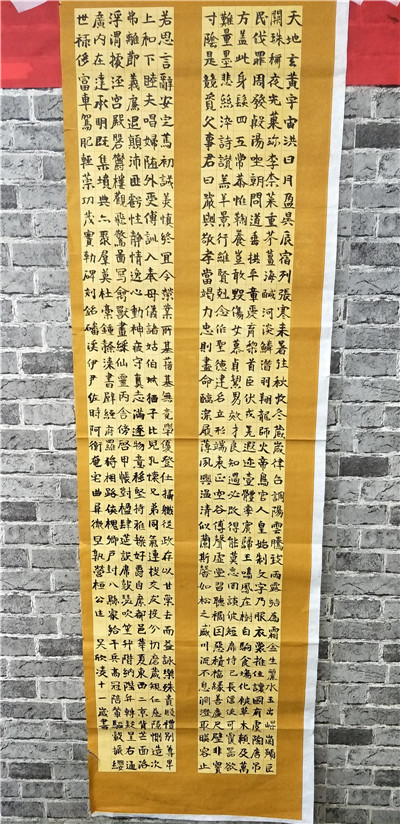 天地玄黃宇宙洪日月盈昃辰宿列張寒来暑往秋收冬藏歲律吕調陽雲騰致雨露結為霜金生麗水玉出崐崗巨
闕珠稱夜光菓珍李柰菜重芥薑海鹹河淡鱗潛羽翔龍師火帝鳥官人皇始制文字乃服衣裳推位讓國有虞陶唐吊
民伐罪周發殷湯坐朝問道垂拱平章愛育黎首臣伏戎羌遐邇壹體率賓歸王鳴鳳在樹白駒食場化被草木賴及萬
方蓋此身髮四五常恭惟鞠養豈敢毀傷女慕貞潔男效才良知過必改得能莫忘罔談彼短靡恃己長信使可覆器欲
難量墨悲絲染詩讚羔羊景行維賢剋念作聖德建名立形端表正空谷傳聲虛堂習聽禍因惡積福緣善慶尺璧非寶
寸陰是競資父事君曰嚴與敬孝當竭力忠則盡命臨深履薄夙興溫清似蘭斯馨如松之盛川流不息淵澄取暎容止
若思言辭安定篤初誠美慎終宜令榮業所基籍甚無竟學優登仕攝職從政存以甘棠去而益詠樂殊貴賤禮別尊卑
上和下睦夫唱婦隨外受傅訓入奉母儀諸姑伯叔猶子比兒孔懷兄弟同氣連枝交友投分切磨箴規仁慈隱惻造次
弗離節義廉退顛沛匪虧性靜情逸心動神疲守真志滿逐物意移堅持雅操好爵自縻都邑華夏東西二京背芒面洛
浮渭據涇宮殿盤鬱樓觀飛驚圖寫禽獸畫綵仙靈丙舍傍啓甲帳對楹肆筵設席鼓瑟吹笙升階納陛弁轉疑星右通
廣內左達承明既集墳典亦聚群英杜稾鍾隸漆書壁經府羅將相路俠槐卿戶封八縣家給千兵高冠陪輦驅轂振纓
世祿侈富車駕肥輕策功茂實勒碑刻銘磻溪伊尹佐時阿衡奄宅曲阜微旦孰營桓公匡
吳欣淩十一歲書